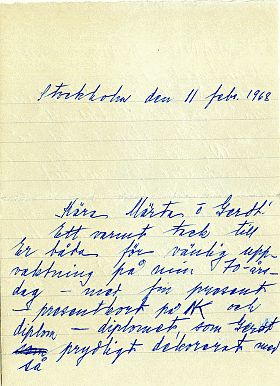 Stockholm den 11 febr. 1968
Kära Märta o Gerdt!
Ett varmt tack till
Er båda för vänlig upp-
vaktning på min 70-års-
dag – med fin present
– presentkort på NK och
diplom – diplomet, som Gerdt
så prydligt dekorerat med